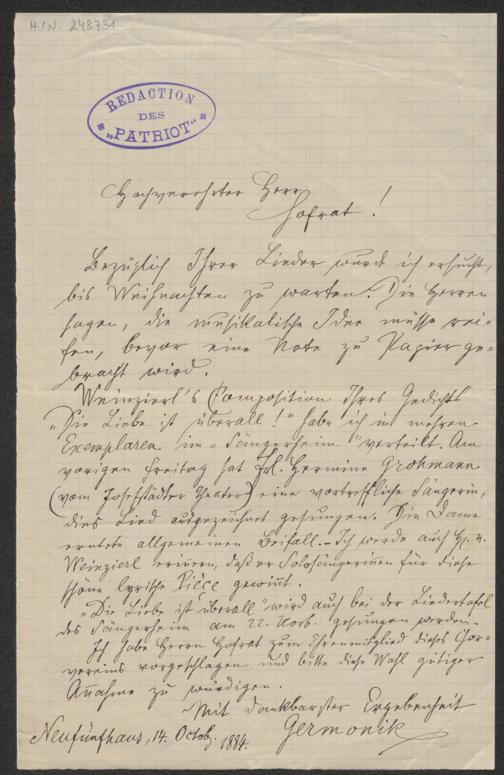 H.I.N. 248731
REDACTION
DES
„PATRIOT“
Hochverehrter Herr
Hofrat!
Bezüglich Ihrer Lieder wurde ich ersucht,
bis Weihnachten zu warten. Die Herren
sagen, die musikalische Idee müsse rei-
fen, bevor eine Note zu Papier ge-
bracht wird.
Weinzierl's Composition Ihres Gedichts
„Die Liebe ist überall!“ habe ich in mehren
Exemplaren im „Sängerheim“ verteilt. Am
vorigen Freitag hat Frl. Hermine Grohmann
(vom Josefstädter Theater) eine vortreffliche Sängerin,
dies Lied ausgezeichnet gesungen. Die Dame
erntete allgemeinen Beifall. – Ich werde auch H. v.
Weinzierl erinern, daß er Solosängerinen für diese
schöne lyrische Pièce gewint.
„Die Liebe ist überall“ wird auch bei der Liedertafel
des Sängerheim am 22. Novb. gesungen werden.
Ich habe Herrn Hofrat zum Ehrenmitglied dieses Chor-
vereins vorgeschlagen und bitte diese Wahl gütiger
Anahme zu würdigen.
Mit dankbarster Ergebenheit
Germonik
Neufünfhaus, 14. Octob. 1884.